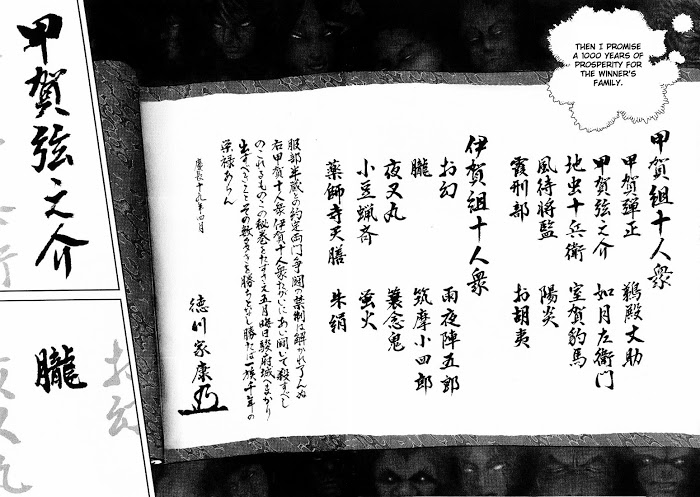 THEN I PROMISE
A 1000 YEARS OF
PROSPERITY FOR
THE WINNER'S
FAMILY.
甲賀組十人衆
甲賀弾正 鵜殿丈助
甲賀弦之介 如月左衛門
地虫十兵衛 室賀豹馬
風待将監 陽炎
霞刑部 お胡夷
伊賀組十人衆
お幻 雨夜陣五郎
朧 筑摩小四郎
夜叉丸 蓑念鬼
小豆蝋斎 蛍火
薬師寺天膳 朱絹
服部半蔵との約定両門争闘の禁制は解かれ了んぬ
右甲賀十人衆伊賀十人衆たがいにあい闘して殺すべし
のこれるものこの秘巻をたずさえ五月晦日駿府城へまかり
出ずべきことその数多きを勝ちとなし勝たば一族千年の
栄禄あらん
慶長十九年四月
徳川家康
甲賀弦之介
朧
お幻